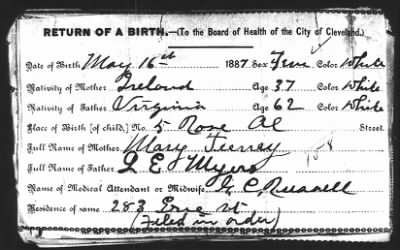 RETURN OF A BIRTH.—(To the Board of Health of the City of Cleveland.)
Date of Birth May 16th 1887 Sex Fem Color White
Nativity of Mother Ireland Age 37 Color White
Nativity of Father Virginia Age 62 Color White
Place of Birth (of child,) No. 5 Rose Al Street.
Full Name of Mother Mary
Full Name of Father J E Myers 158
Name of Medical Attendant or Midwife G C Russell
Residence of same 283 St
(Filed in order)